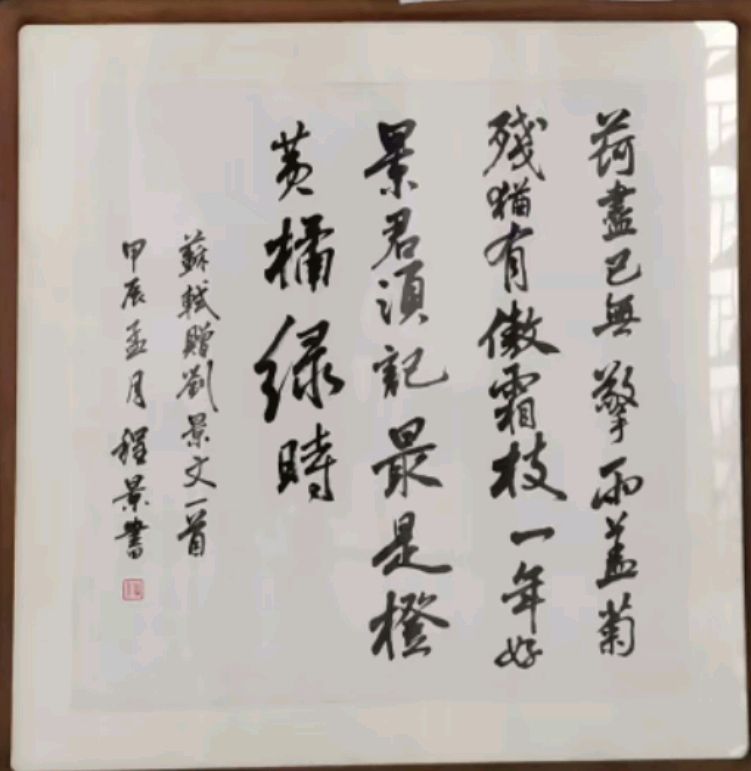 荷盡已無擎雨蓋菊
殘猶有傲霜枝一年好
景君須記最是橙
黄橘绿時
蘇軾贈劉景文一首
甲辰孟月程景書